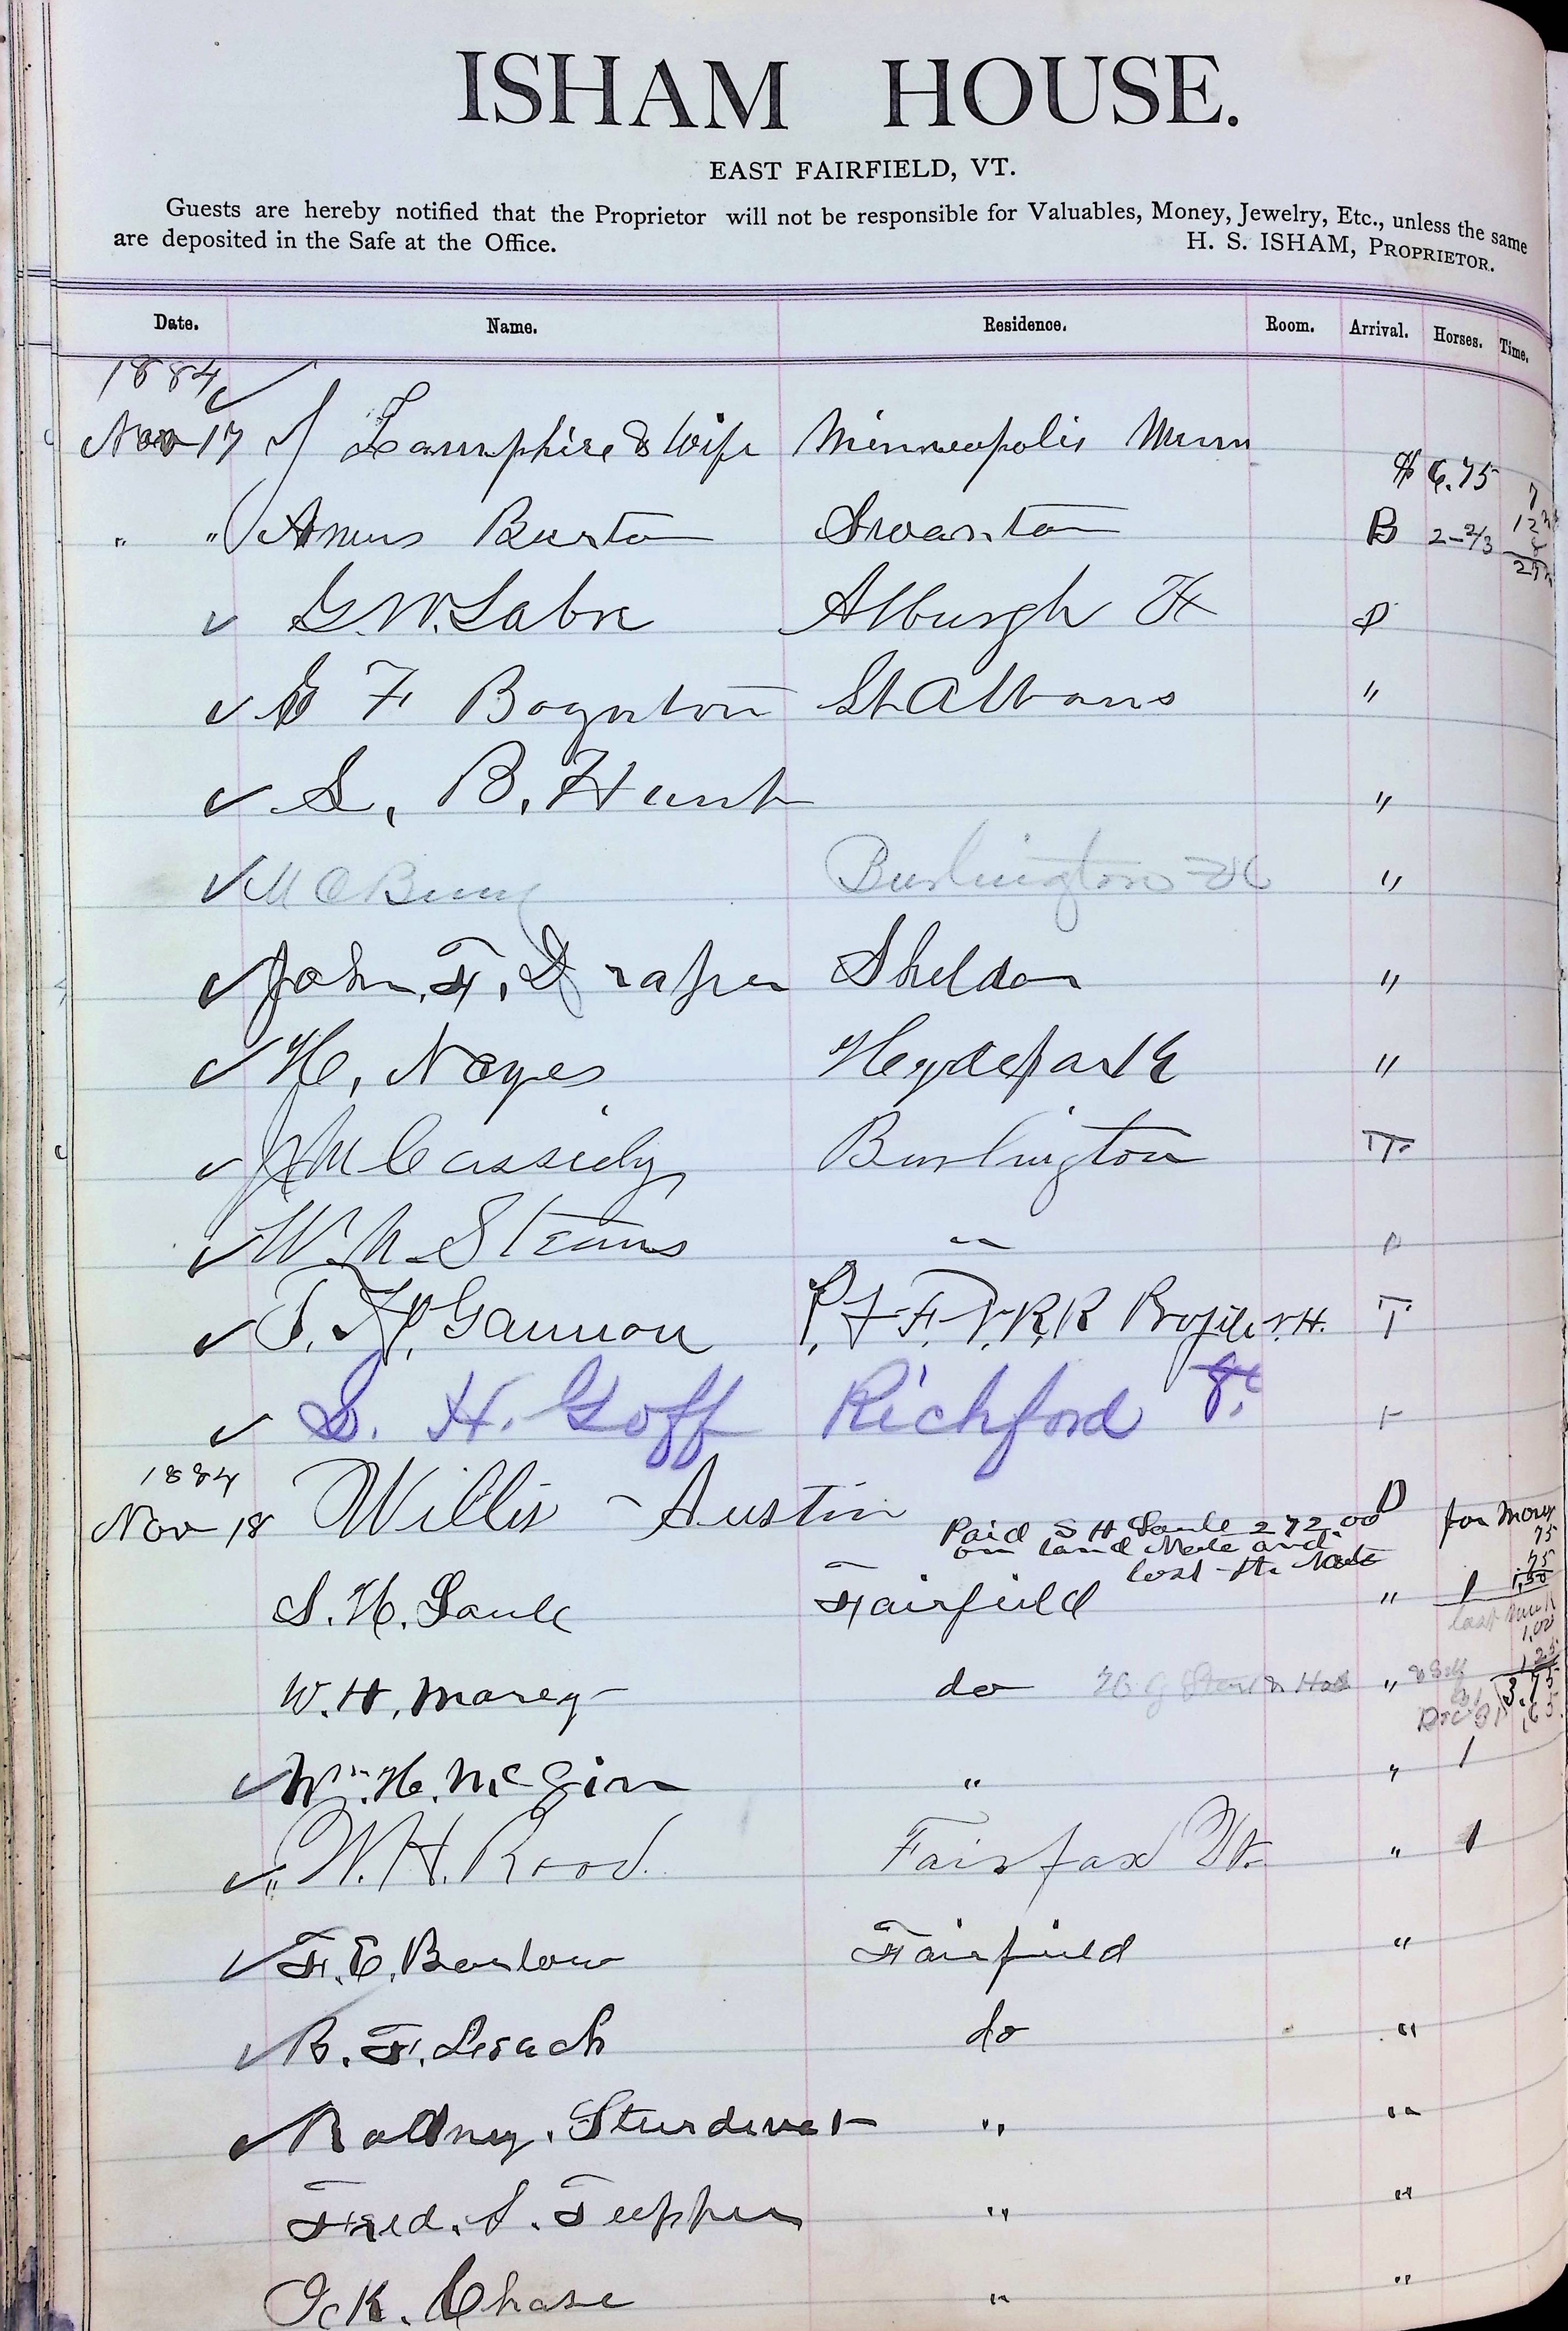 ISHAM HOUSE.
EAST FAIRFIELD, VT.
Guests are hereby notified that the Proprietor will not be responsible for Valuables, Money, Jewelry, Etc., unless the same
are deposited in the Safe at the Office. H. S. ISHAM, PROPRIETOR.
Date. Name. Residence. Room. Arrival. Horses. Time.
1884 ✓
Nov 17 Lamphire & Wife Minneapolis Minn
$ 6.75
" " Amus Burton Swanton B 2-2/3
✓ G.W. Labre Alburgh D
✓ F Boynton St Albans "
✓ S. B. Hunt "
✓ M C Burlington "
✓ John. F. Draper Sheldon "
✓ H. Noyes Hydepark "
✓ J M Cassidy Burlington T
✓ W. N. Stearns "
✓ Gannon P. & F. N. R.R Profile N.H. T
✓ S. H. Goff Richford Vt.
1884
Nov 18 Willis Austin D
Paid S H Soule 272.00 for
on land Note and 75
lost the Note 75
S. H. Soule Fairfield " 1 1.50
1.00
W. H. Marey do " 1.25
3.75
Dec 31 .65
✓ Wm. H. McGinn " " 1
✓ W. H. Rood. Fairfax Vt. " 1
✓ F. E. Barlow Fairfield "
✓ B. F. Leach do "
✓ Rodney. Sturdevet " "
Fred. S. Tupper " "
K. Chase " "